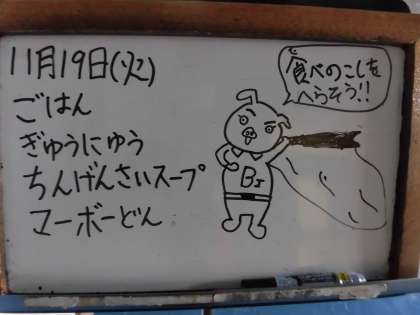 11月19日(火)
ごはん
ぎゅうにゅう
ちんげんさいスープ
マーボーどん
食べのこしを
へらそう!!
BJ